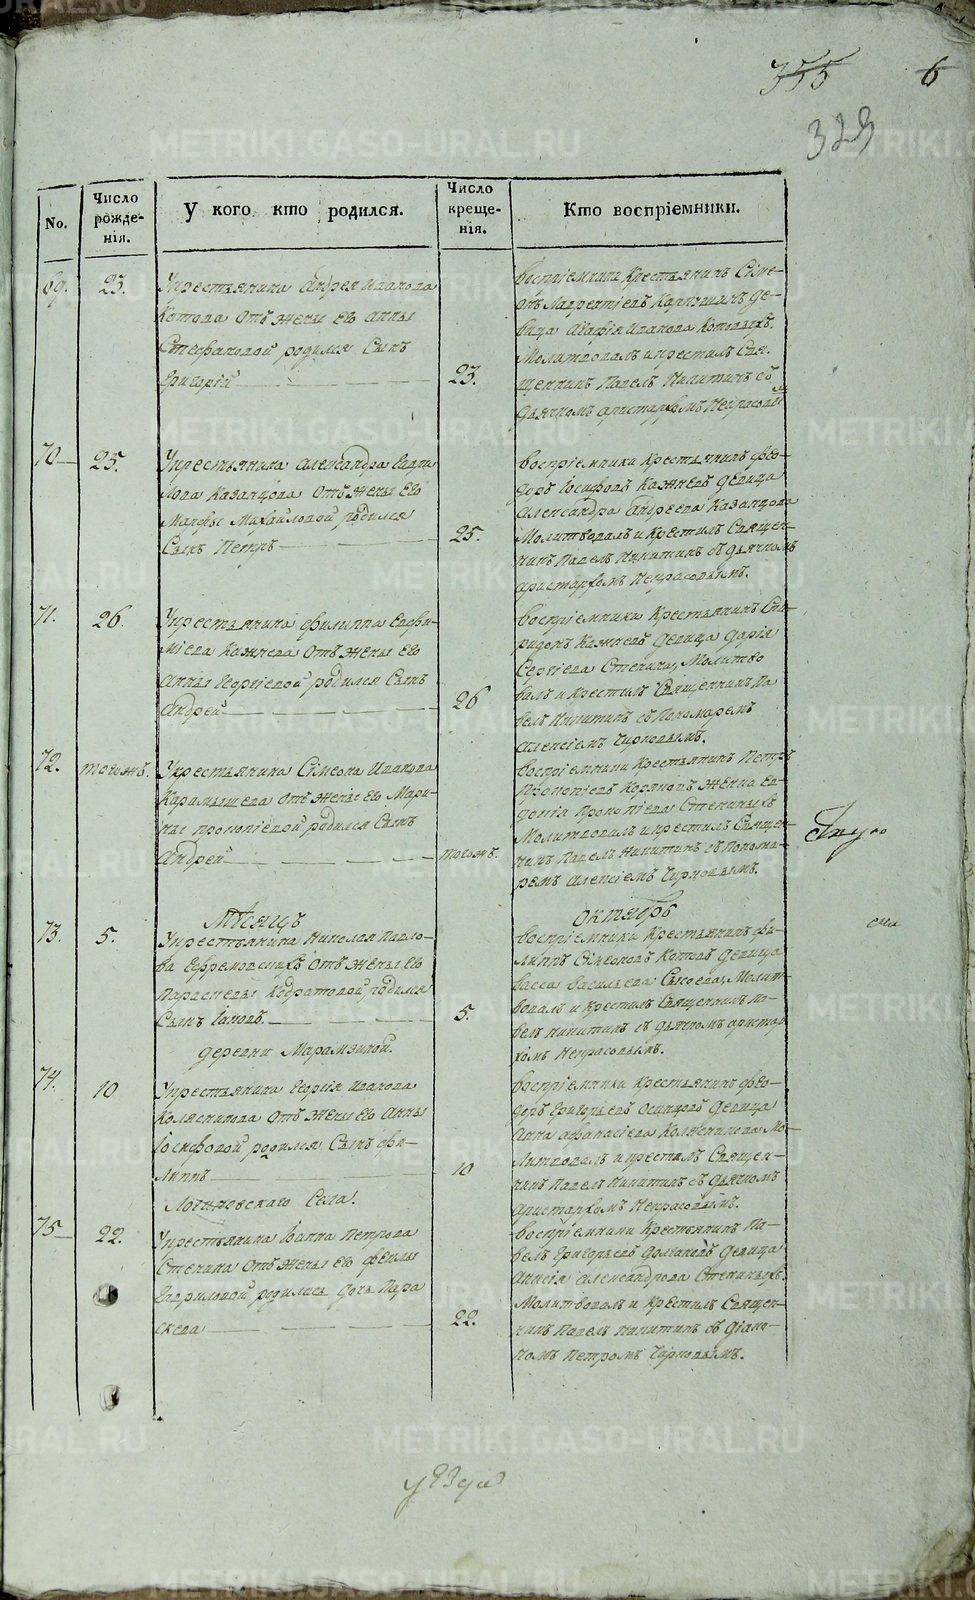 355 6
329
No.
Число рожде-
нія.
У кого кто родился.
Число креще-
нія.
Кто воспріемники.
69. 23.
Укрестьянина Андрея Иванова
Котова отъ жены его Анны
Стефановой родился сынъ
Григорій
23.
Воспріемники крестьянинъ Симе-
онъ Лаврентіевъ Карпушинъ де-
вица Агафія Иванова Котовыхъ.
Молитвовалъ и крестилъ Свя-
щенникъ Павелъ Никитинъ съ
дьячкомъ Аристархомъ Некрасовымъ
70 25.
Укрестьянина Александра Гаври-
лова Казанцова отъ жены его
Марфы Михайловой родился
сынъ Петръ
25.
Воспріемники крестьянинъ Фео-
доръ Іосифовъ Кажневъ девица
Александра Андреева Казанцова
Молитвовалъ и крестилъ Священ-
никъ Павелъ Никитинъ съ дьячкомъ
Аристархомъ Некрасовымъ.
71. 26.
Укрестьянина Филиппа Евфи-
міева Кажнева отъ жены его
Анны Георгіевой родился сынъ
Андрей
26
Воспріемники крестьянинъ Спи-
ридонъ Кажневъ девица Дарія
Сергіева Стенина, Молитво
валъ и крестилъ Священникъ Па
велъ Никитинъ съ пономаремъ
Алексіемъ Чирковымъ.
72. тогожъ.
Укрестьянина Сімеона Иванова
Карамышева отъ жены его Мари-
ны Прокопіевой родился сынъ
Андрей
тогожъ.
Воспріемники крестьянинъ Петръ
Прокопіевъ женка Ев-
докія Прокопіева Стениныхъ
Молитвовалъ и крестилъ Священ-
никъ Павелъ Никитинъ съ понома-
ремъ Алексіемъ Чирковымъ.
Мѣсяцъ Октябрь
73. 5.
Укрестьянина Николая Павло-
ва Ефремовскихъ отъ жены его
Параскевы Кодратовой родился
сынъ Іаковъ.
5.
Воспріемники крестьянинъ Фи-
липпъ Сімеоновъ Котовъ девица
Васса Васильева Сысоева, Молит-
вовалъ и крестилъ Священникъ Па-
велъ Никитинъ съ дьячкомъ Аристар
хомъ Некрасовымъ.
деревни Марамзиной.
74. 10
Укрестьянина Георгія Иванова
Колясникова отъ жены его Анны
Іосифовой родился сынъ Фи-
липпъ
10
Воспріемники крестьянинъ Фео-
доръ Григорьевъ Осинцовъ девица
Анна Афанасіева Колясникова Мо-
литвовалъ и крестилъ Священ-
никъ Павелъ Никитинъ съ дьячкомъ
Аристархомъ Некрасовымъ.
Логиновскаго села.
75 22.
Укрестьянина Іоанна Петрова
Стенина отъ жены его Феклы
Гавриловой родилась дочь Пара
скева
22.
Воспріемники крестьянинъ Па-
велъ Григорьевъ Долгановъ девица
Анисія Александрова Стениныхъ.
Молитвовалъ и крестилъ Священ-
никъ Павелъ Никитинъ съ діако-
номъ Петромъ Чирковымъ.
уѣзда
METRIKI.GASO-URAL.RU